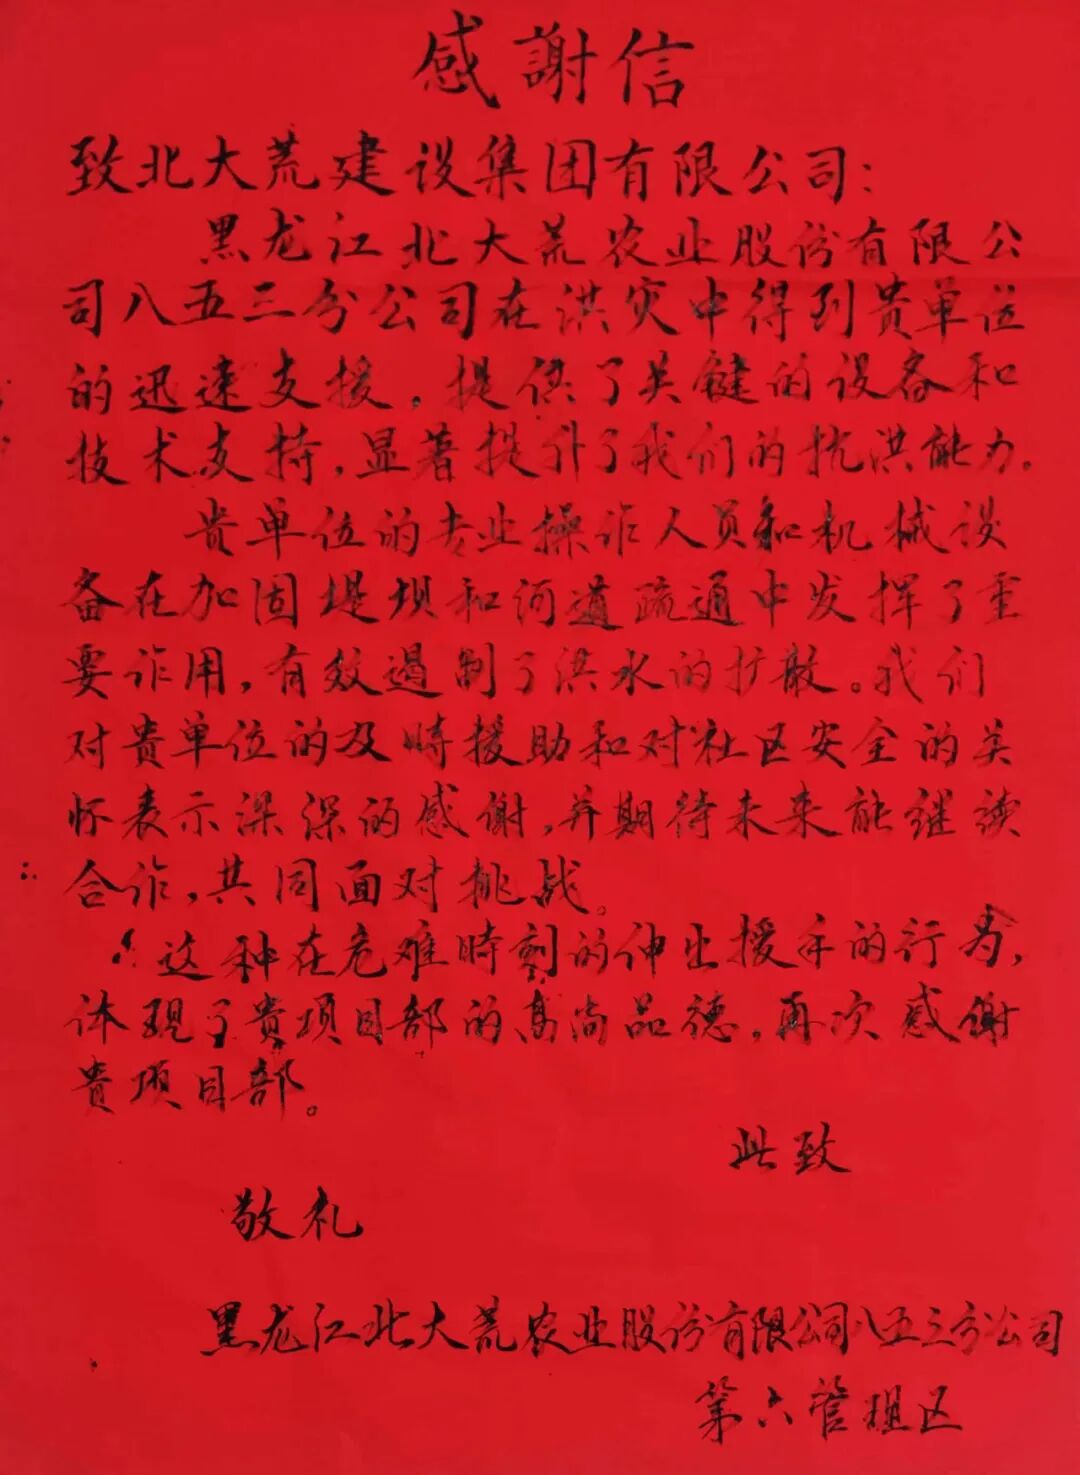 感謝信
致北大荒建设集团有限公司:
黑龙江北大荒农业股份有限公
司八五三分公司在洪灾中得到贵单位
的迅速支援，提供了关键的设备和
技术支持，显著提升了我们的抗洪能力。
贵单位的专业操作人员和机械设
备在加固堤坝和河道疏通中发挥了重
要作用，有效遏制了洪水的扩散。我们
对贵单位的及時援助和对社区安全的关
怀表示深深的感谢，并期待未来能继续
合作，共同面对挑战。
这种在危难時刻的伸出援手的行为，
体现了贵项目部的高尚品德，再次感谢
贵项目部。
此致
敬礼
黑龙江北大荒农业股份有限公司八五三分公司
第六管理区